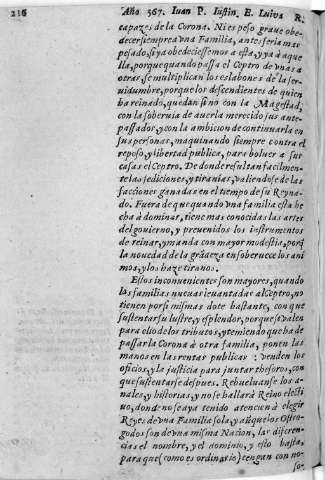 216 Año 567. Iuan P. Iustin. E. Luiva R.
capazes de la Corona. Ni es peso graue obe-
decer siempre a vna Familia, antes seria mas
pesado, si ya obedeciessemos a esta, y ya à aque
lla, porque quando passa el Ceptro de vnas a
otras, se multiplican los eslabones de la ser-
uidumbre, porque los descendientes de quien
ha reinado, quedan si no con la Magestad,
con la soberuia de auerla merecido sus ante-
passados, y con la ambicion de continuarla en
sus personas, maquinando siempre contra el
reposo, y libertad publica, para boluer a sus
casas el Ceptro. De donde resultan facilmen-
te las sediciones, y tiranias, valiendose de las
facciones ganadas en el tiempo de su Reyna-
do. Fuera de que quando vna familia esta he
cha à dominar, tiene mas conocidas las artes
del gouierno, y preuenidos los instrumentos
de reinar, y manda con mayor modestia, porq̃
la nouedad de la grãdeza ensoberuece los ani
mos, y los haze tiranos.
Estos inconuenientes son mayores, quando
las familias nueuas leuantadas al Ceptro, no
tienen por si mismas dote bastante, con que
sustentar su lustre, y esplendor, porque se valen
para ello de los tributos, y temiendo que ha de
passar la Corona à otra familia, ponen las
manos en las rentas publicas: venden los
oficios, y la justicia para juntar thesoros, con
que sustentarse despues. Rebueluanse los a-
nales, y historias, y no se hallarà Reino electi
uo, donde no se aya tenido atencion à elegir
Reyes de vna Familia sola, y aũque los Ostro-
godos son de vna misma Nacion, las diferen-
cias el nombre, y el dominio, y esto basta,
para que (como es ordinario) tengan con no-
so-